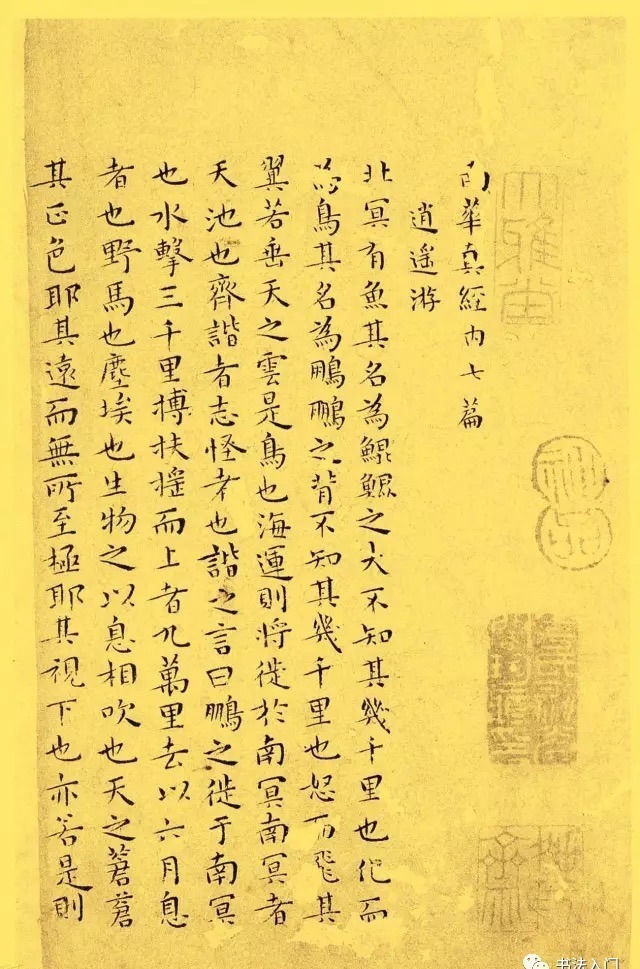 南華真經內七篇
逍遙游
北冥有魚其名為鯤鯤之大不知其幾千里也化而
為鳥其名為鵬鵬之背不知其幾千里也怒而飛其
翼若垂天之雲是鳥也海運則將徙於南冥南冥者
天池也齊諧者志怪者也諧之言曰鵬之徙于南冥
也水擊三千里搏扶搖而上者九萬里去以六月息
者也野馬也塵埃也生物之以息相吹也天之蒼蒼
其正色耶其遠而無所至極耶其視下也亦若是則
大雅堂
神品
书法入门